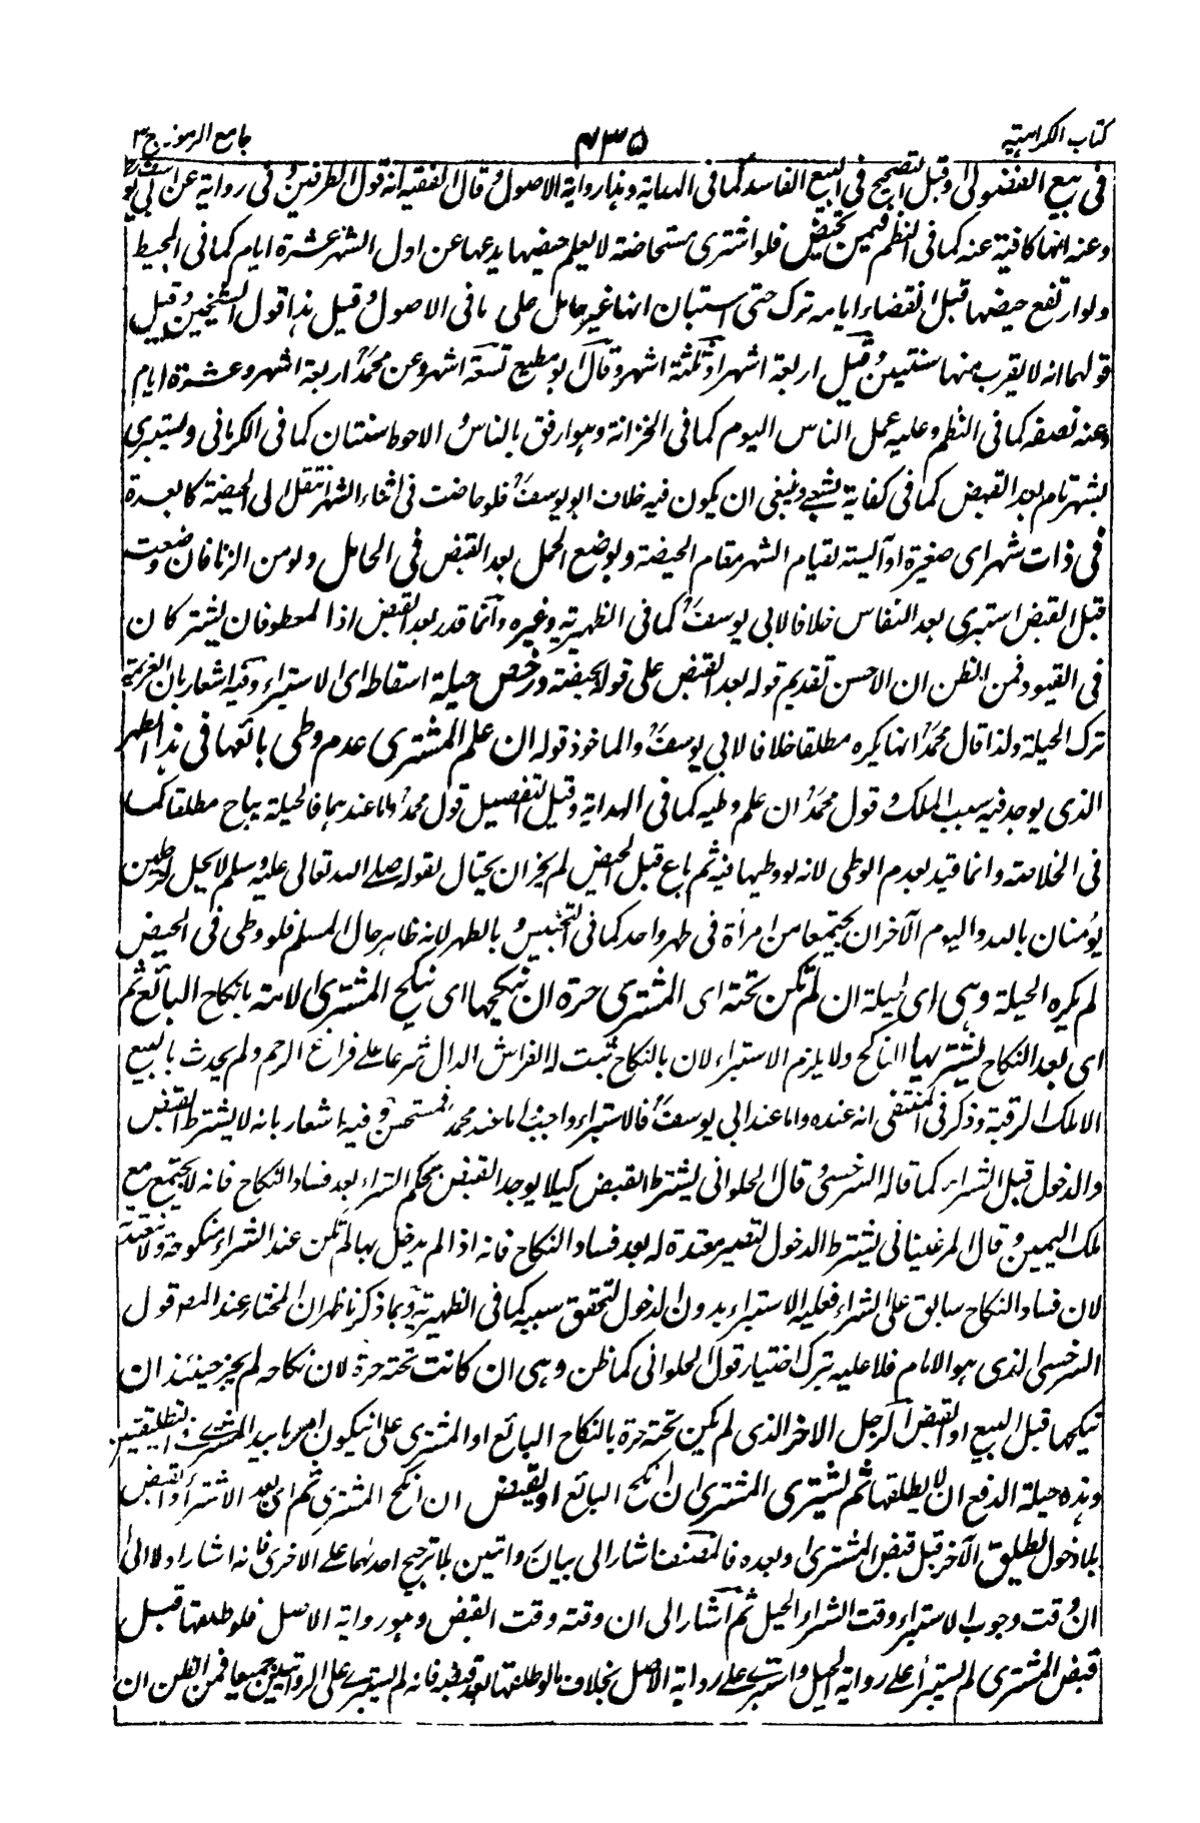 كتاب الكراهية ٧٣٥ جامع الرموز ج٣
فى بيع الفضولى وقبل التصحيح فى البيع الفاسد كما فى الهداية وهذا رواية الاصول وقال الفقيه انه قول الطرفين وفى رواية عن ابى يوسف
وعنه انها كافية عنه كما فى النظم فيمن تحيض فلو اشترى مستحاضة لا يعلم حيضها يدعها عن اول الشهر عشرة ايام كما فى المحيط
ولو ارتفع حيضها قبل انقضاء ايامه ترك حتى استبان انها غير حامل على ما فى الاصول وقيل هذا قول الشيخين وقيل
قولهما انه لا يقرب منها سنتين وقيل اربعة اشهر او ثلثة اشهر وقال ابو مطيع تسعة اشهر وعن محمد اربعة اشهر وعشرة ايام
وعنه نصفه كما فى النظم وعليه عمل الناس اليوم كما فى الخزانة وهو ارفق بالناس والاحوط سنتان كما فى الكرمانى ويستبرئ
بشهر تام بعد القبض كما فى كفاية الشعبى وينبغى ان يكون فيه خلاف ابو يوسف فلو حاضت فى اثناء الشهر انتقل الى الحيضة كالعدة
فى ذات شهر اى صغيرة او آئسة لقيام الشهر مقام الحيضة وبوضع الحمل بعد القبض فى الحامل ولو من الزنا فان وضعت
قبل القبض استبرئ بعد النفاس خلافا لابى يوسف كما فى الظهيرية وغيره وانما قدر بعد القبض اذا لمعطوفان يشتركان
فى القيود فمن الظن ان الاحسن تقديم قوله بعد القبض على قوله بحيضة ورخص حيلة اسقاطه اى الاستبراء وفيه اشعار بان العزيمة
ترك الحيلة ولذا قال محمد انها يكره مطلقا خلافا لابى يوسف والماخوذ قوله ان علم المشترى عدم وطى بائعها فى هذا الطهر
الذى يوجد فيه سبب الملك وقول محمد ان علم وطيه كما فى الهداية وقيل التفصيل قول محمد واما عندهما فالحيلة يباح مطلقا كما
فى الخلاصة وانما قيد بعدم الوطى لانه لو وطيها فيه ثم باع قبل الحيض لم يجز ان يحتال لقوله صلى الله تعالى عليه وسلم لا يحل لرجلين
يؤمنان بالله واليوم الآخر ان يجتمعا من امرأة فى طهر واحد كما فى التجنيس وبالطهر لانه ظاهر حال المسلم فلو وطى فى الحيض
لم يكره الحيلة وهى اى الحيلة ان لم تكن تحته اى المشترى حرة ان ينكحها اى ينكح المشترى الامة بانكاح البائع ثم
اى بعد النكاح يشتريها الناكح ولا يلزم الاستبراء لان بالنكاح ثبت له الفراش الدال شرعا على فراغ الرحم ولم يحدث بالبيع
الا ملك الرقبة وذكر فى المنتقى انه عنده واما عند ابى يوسف فالاستبراء واجب واما عند محمد فمستحسن وفيه اشعار بانه لا يشترط القبض
والدخول قبل الشراء كما قاله السرخسى وقال الحلوانى يشترط القبض كيلا يوجد القبض بحكم الشراء بعد فساد النكاح فانه لا يجتمع مع
ملك اليمين وقال المرغينانى يشترط الدخول لتصير معتدة له بعد فساد النكاح فانه اذا لم يدخل بها لم تكن عند الشراء منكوحة ولا معتدة
لان فساد النكاح سابق على الشراء فعليه الاستبراء بدون الدخول لتحقق سببه كما فى الظهيرية وبما ذكرنا ظهر ان المختار عند المص قول
السرخسى الذى هو الامام فلا عليه بترك اختيار قول الحلوانى كما ظن وهى ان كانت تحته حرة لان نكاحه لم يجز حينئذ ان
ينكحها قبل البيع او القبض لرجل الاخر الذى لم يكن تحته حرة بانكاح البائع او المشترى على ان يكون امرها بيد المشترى فى التطليقتين
وهذه حيلة الدفع ان لا يطلقها ثم يشترى المشترى ان انكح البائع او يقبض ان انكح المشترى ثم اى بعد الاشتراء او القبض
بلا دخول يطلق الآخر قبل قبض المشترى او بعده فالمصنف اشار الى بيان روايتين بلا ترجيح احدهما على الاخرى فانه اشار اولا الى
ان وقت وجوب الاستبراء وقت الشراء الحيل ثم اشار الى ان وقته وقت القبض وهو رواية الاصل فلو طلقها قبل
قبض المشترى لم يستبرأ على رواية الحيل واستبرئ على رواية الاصل بخلاف ما لو طلقها بعد قبضه فانه لم يستبرئ على الروايتين جميعا فمن الظن ان